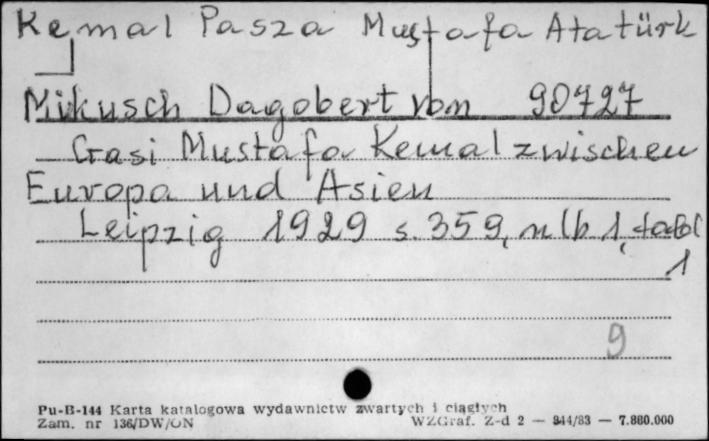 Kemal Pasza Mustafa Atatürk
Mikusch Dagobert von 90727
Gasi Mustafa Kemal zwischen
Europa und Asien
Leipzig 1929 s. 359, nlb 1, tabl
1
9
Pu-B-144 Karta katalogowa wydawnictw zwartych i ciągłych
Zam. nr 136/DW/ON WZGraf. Z-d 2 — 944/83 — 7.880.000